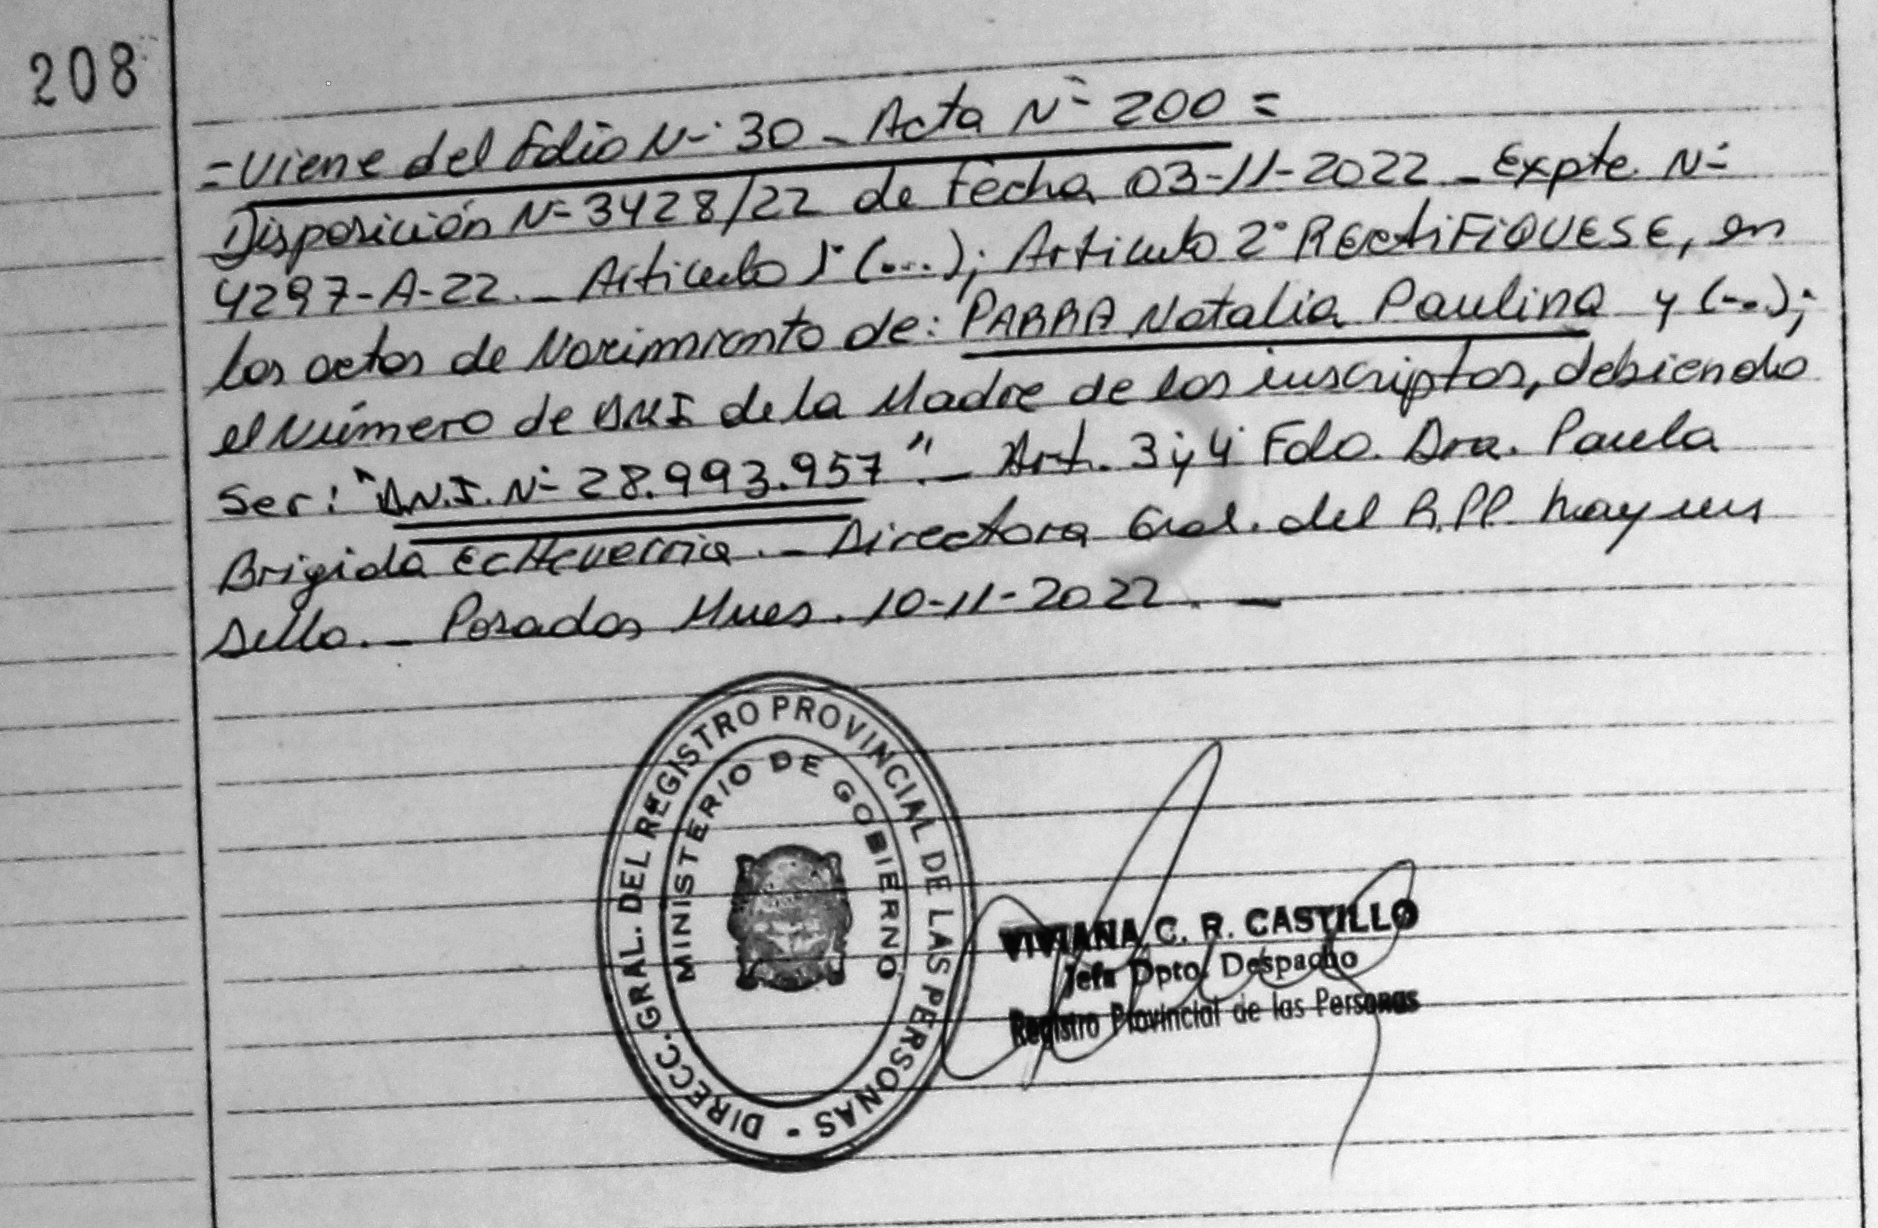 208
=Viene del folio N-° 30 - Acta N° 200 =
Disposición N° 3428/22 de fecha 03-11-2022 - Expte. N°
4297-A-22. - Articulo 1° (...); Articulo 2° RECtiFiQUESE, en
las actas de Nacimiento de: PARRA Natalia Paulina y (...);
el Número de DNI de la Madre de los inscriptos, debiendo
Ser: "D.N.I. N° 28.993.957". - Art. 3 y 4 Fdo. Dra. Paula
Brigida Echeverria. - Directora Gral. del R.P.P. hay un
Sello. - Posadas Mnes. 10-11-2022. -
DIRECC. GRAL. DEL REGISTRO PROVINCIAL DE LAS PERSONAS -
MINISTERIO DE GOBIERNO
VIVIANA C. R. CASTILLO
Jefa Dpto. Despacho
Registro Provincial de las Personas